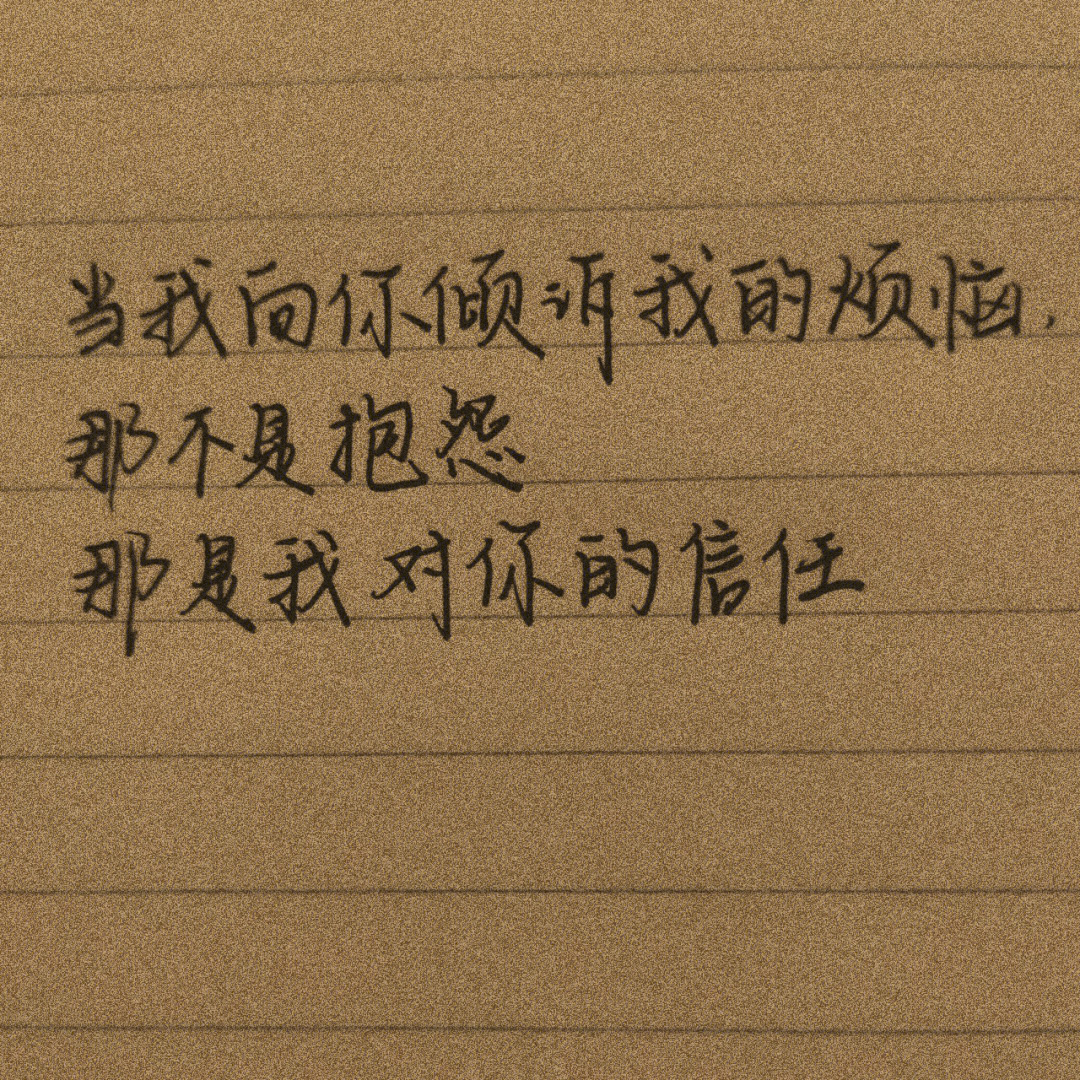 当我向你倾诉我的烦恼，
那不是抱怨
那是我对你的信任